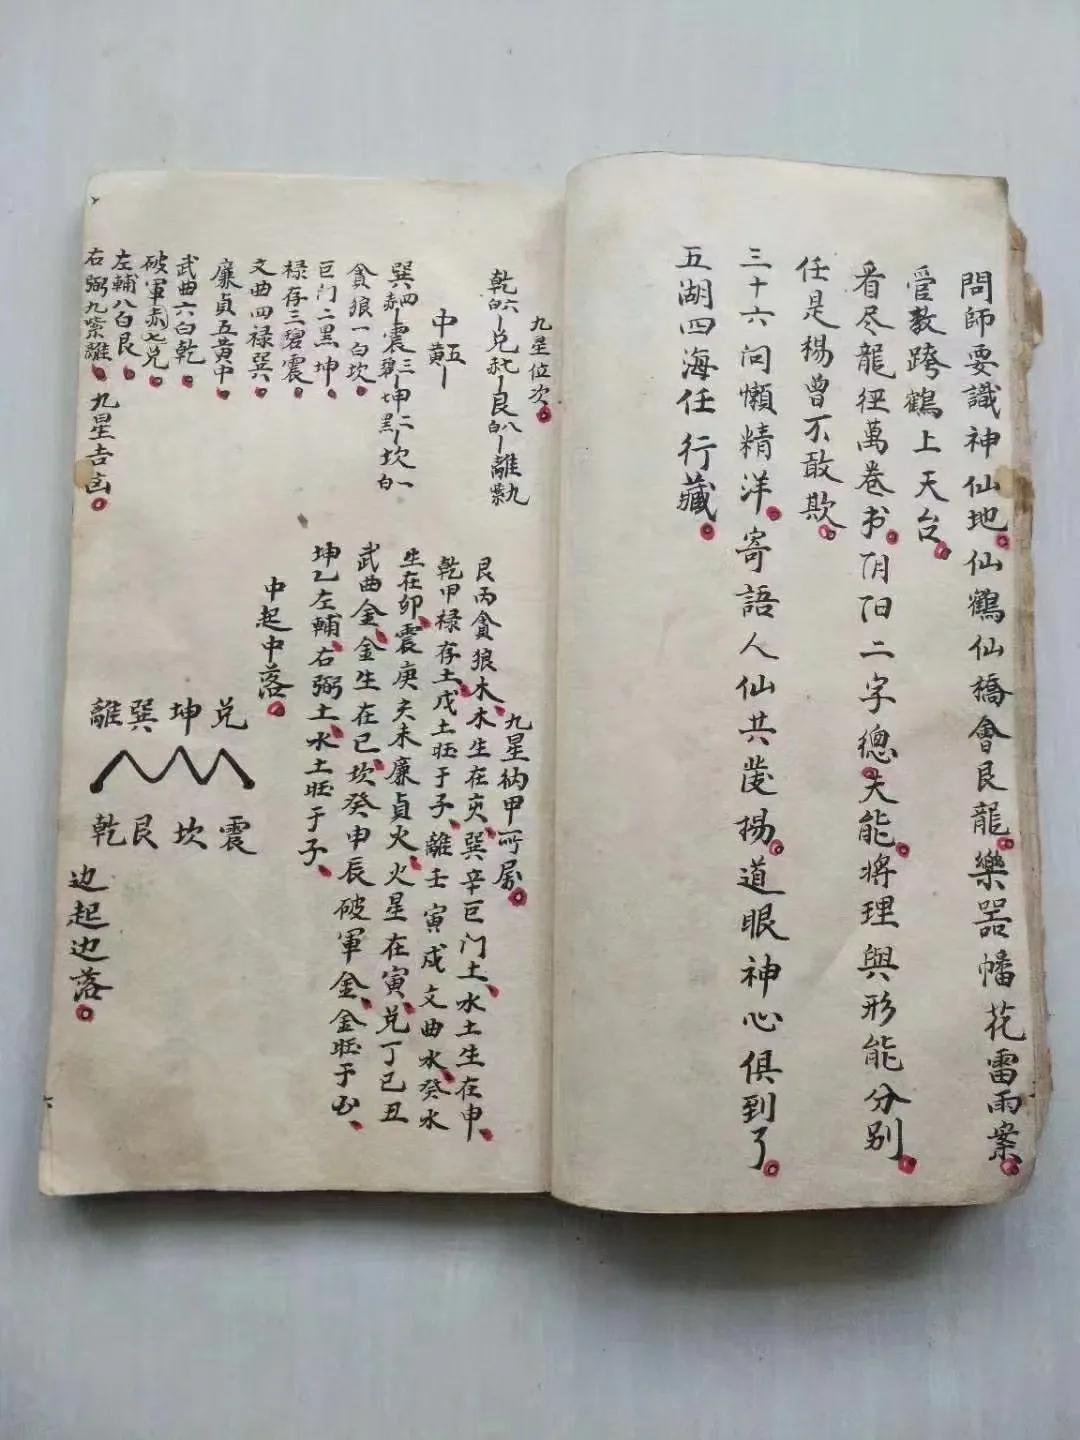 問師要識神仙地仙鶴仙橋會艮龍樂器幡花雷雨案
管教跨鶴上天台
看尽龍徑萬卷书阴阳二字總夫能將理與形能分别
任是楊曾不敢欺
三十六问懶精洋寄語人仙共發揚道眼神心俱到了
五湖四海任行藏
九星位次
乾六白兑七赤艮八白離九紫
中五黄
巽四禄震三碧坤二黑坎一白
貪狼一白坎
巨门二黑坤
禄存三碧震
文曲四禄巽
廉貞五黄中
武曲六白乾
破軍赤七兑
左輔八白艮
右弼九紫離
九星吉凶
九星納甲所屬
艮丙貪狼木木生在亥巽辛巨门土水土生在申
乾甲禄存土戊土旺于子離壬寅戌文曲水癸水
生在卯震庚亥未廉貞火火星在寅兑丁已丑
武曲金金生在巳坎癸申辰破軍金金旺于
坤乙左輔右弼土水土旺于子
中起中落
離巽坤兑
乾艮坎震
边起边落